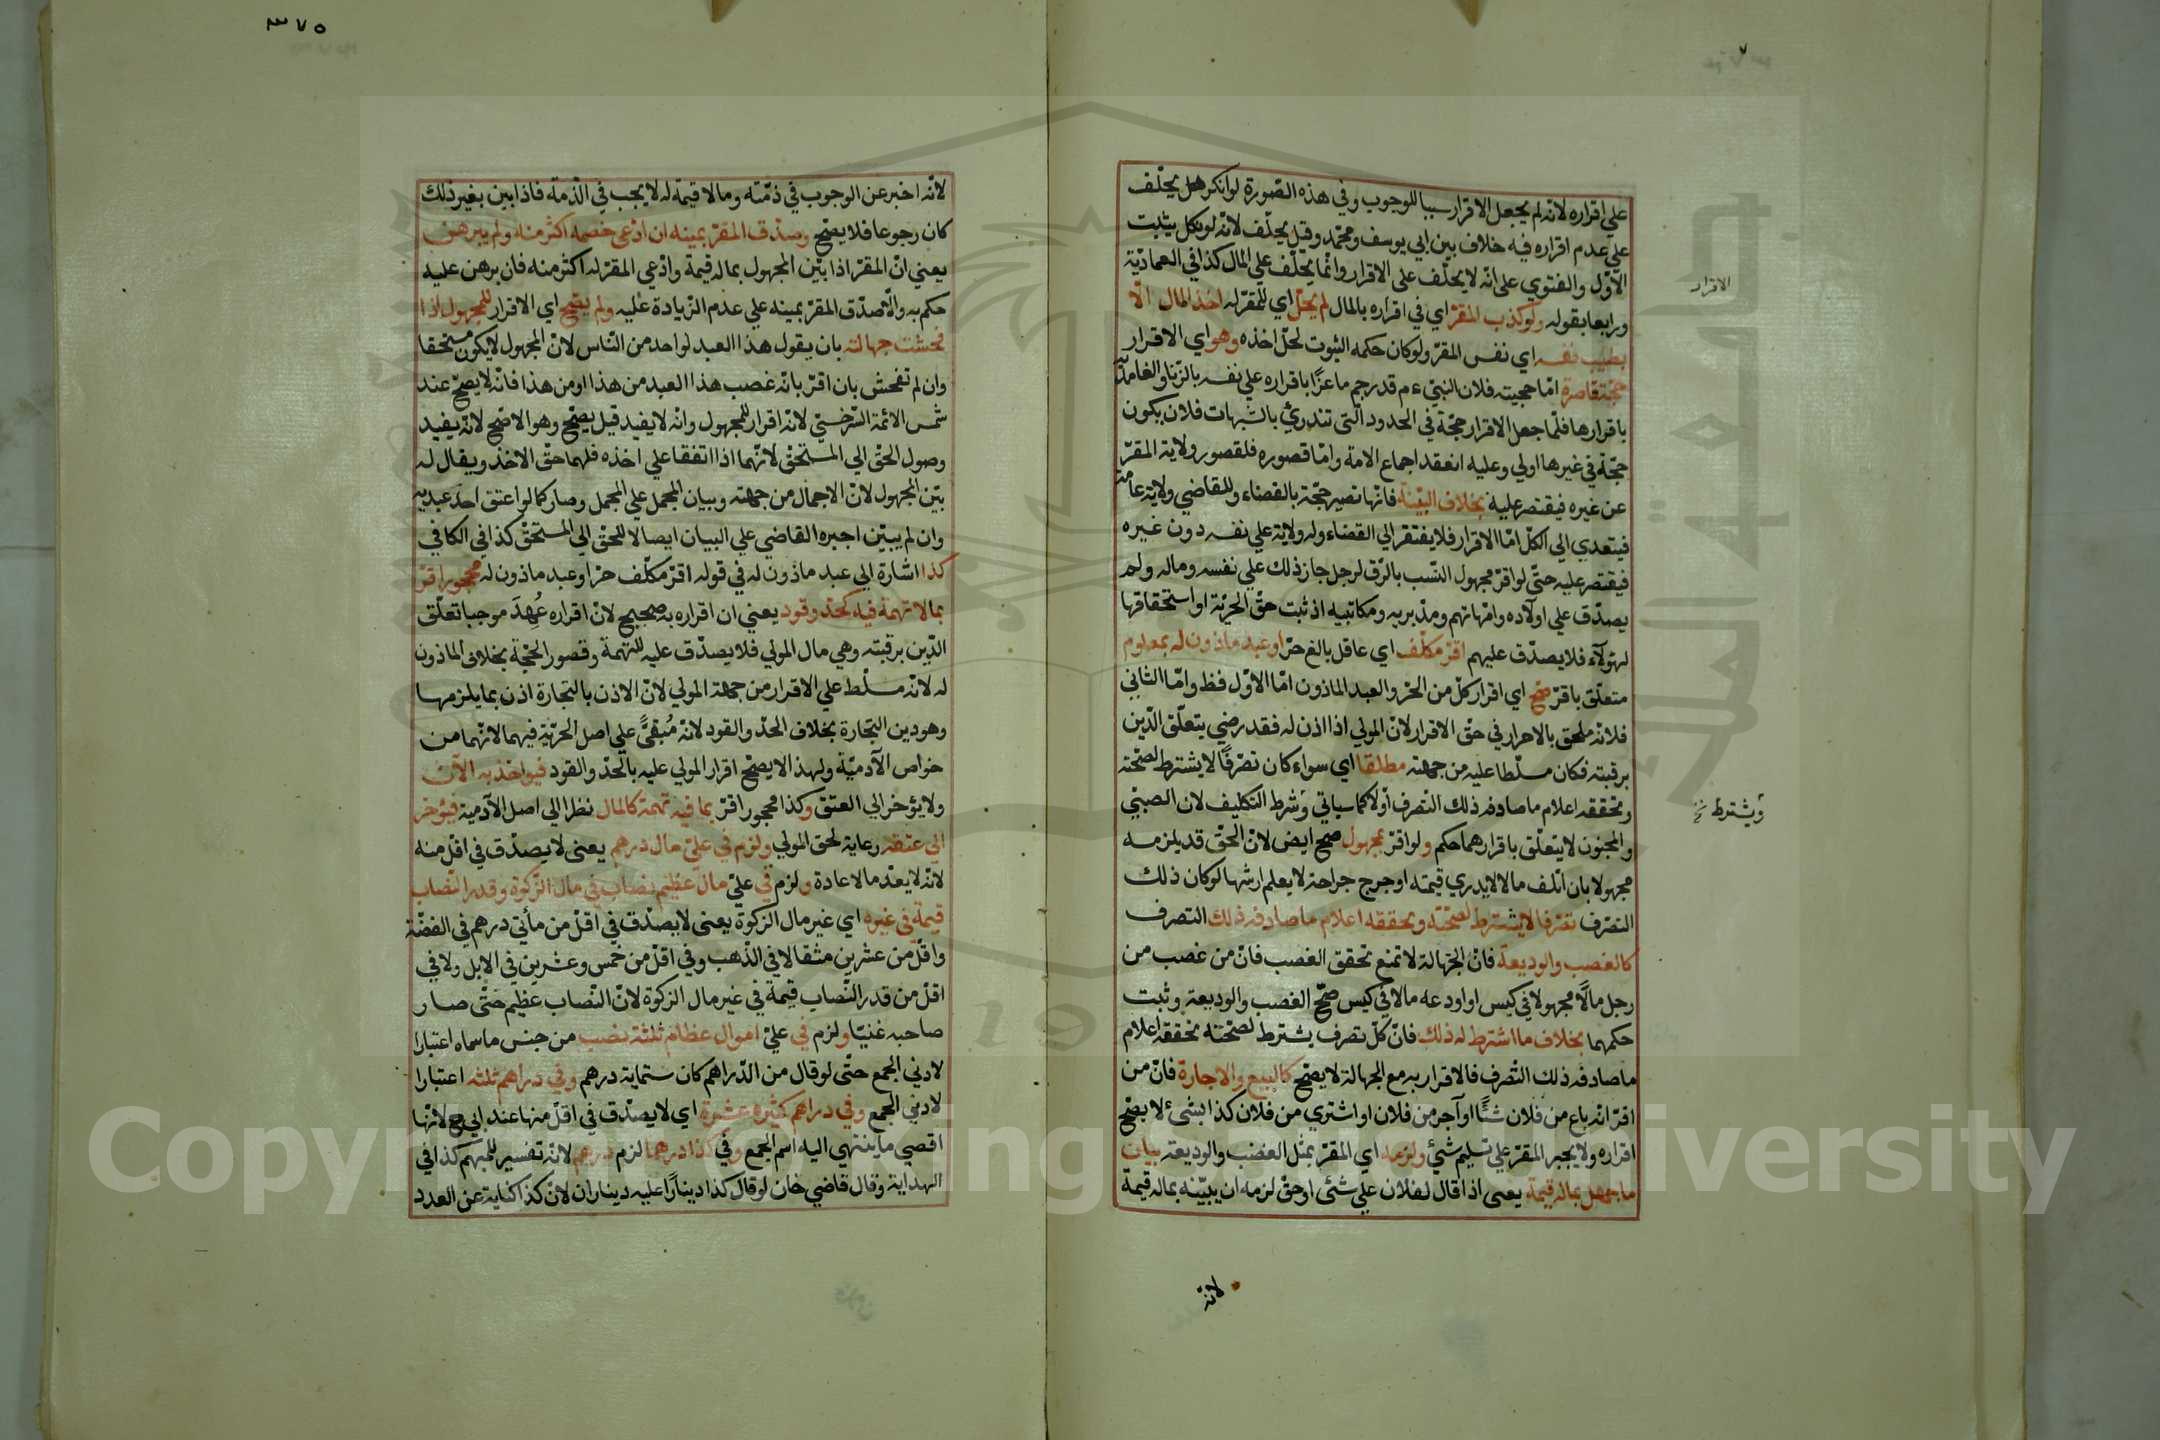 علي اقراره لانه لم يجعل الاقرار سببا للوجوب وفي هذه الصّورة لو انكر هل يحلّف
علي عدم اقراره فيه خلاف بين ابي يوسف ومحمّد وقيل يحلّف لانّه لو نكل يثبت
الاوّل والفتوي على انّه لا يحلّف على الاقرار وانّما يحلّف علي المال كذا في العماديّة
الاقرار
ورابعا بقوله ولو كذب المقرّ اي في اقراره بالمال لم يحلّ اي للمقرّ له اخذ المال الّا
بطيب نفسه اي نفس المقرّ ولو كان حكمه الثبوت لحلّ اخذه وهو اي الاقرار
حجّة قاصرة امّا حجيته فلان النبيّ ءم قد رجم ماعزًا باقراره علي نفسه بالزنا والغامديّة
باقرارها فلمّا جعل الاقرار حجّة في الحدود الّتى تندرئ بالشبهات فلان يكون
حجّة في غيرها اولي وعليه انعقد اجماع الامة وامّا قصوره فلقصور ولاية المقرّ
عن غيره فيقتصر عليه بخلاف البيّنة فانّها تصير حجّة بالقضاء وللقاضي ولاية عامة
فيتعدي الي الكلّ امّا الاقرار فلا يفتقر الي القضاء وله ولاية علي نفسه دون غيره
فيقتصر عليه حتّي لو اقرّ مجهول النسب بالرّق لرجل جاز ذلك علي نفسه وماله ولم
يصدّق علي اولاده وامّهاتهم ومدّبريه ومكاتبيه اذ ثبت حقّ الحريّة او استحقاقها
لهؤلآء فلا يصدّق عليهم اقرّ مكلّف اي عاقل بالغ حرّ او عبد ماذون له بمعلوم
متعلّق باقرّ صحّ اي اقرار كلّ من الحرّ والعبد الماذون امّا الاوّل فظ وامّا الثاني
فلانّه ملحق بالاحرار في حقّ الاقرار لانّ المولي اذا اذن له فقد رضي بتعلّق الدّين
برقبته فكان مسلّطا عليه من جهته مطلقا اي سواء كان تصرّفًا لا يشترط لصحّته
وتحققه اعلام ما صادفه ذلك التصرف أولا كما سياتي وشرط التكليف لان الصبيّ
ويشترط نخ
والمجنون لا يتعلّق باقرارهما حكم ولو اقرّ بمجهول صح ايض لانّ الحقّ قد يلزمه
مجهولا بان اتلف مالا لا يدري قيمته او جرح جراحة لا يعلم ارشها لو كان ذلك
التصرّف تصرّفا لا يشترط لصحّته وتحققه اعلام ما صادفه ذلك التصرف
كالغصب والوديعة فانّ الجهالة لا تمنع تحقق الغصب فانّ من غصب من
رجل مالًا مجهولا في كيس او اودعه مالا في كيس صحّ الغصب والوديعة وثبت
حكمهما بخلاف ما اشترط له ذلك فانّ كلّ تصرف يشترط لصحّته تحققه اعلام
ما صادفه ذلك التصّرف فالاقرار به مع الجهالة لا يصحّ كالبيع والاجارة فانّ من
اقرّ انّه باع من فلان شئًا او آجر من فلان او اشتري من فلان كذا بشئ لا يصحّ
اقراره ولا يجبر المقرّ علي تسليم شئ ولزمه اي المقرّ بمثل الغصب والوديعة بيان
ما جهل بماله قيمة يعنى اذا قال لفلان علي شئ او حقّ لزمه ان يبيّنه بماله قيمة
لانّه
٣٧٥
لانّه اخبر عن الوجوب في ذمّته وما لا قيمة له لا يجب في الذّمة فاذا بين بغير ذلك
كان رجوعا فلا يصحّ وصدّق المقرّ بمينه ان ادّعى خصمه اكثر منه ولم يبرهن
يعني انّ المقرّ اذا بيّن المجهول بماله قيمة وادّعي المقرّ له اكثر منه فان برهن عليه
حكم به والّا صدّق المقرّ بمينه علي عدم الزّيادة عليه ولم يصّح اي الاقرار للمجهول اذا
فحشت جهالته بان يقول هذا العبد لواحد من النّاس لانّ المجهول لا يكون مستحقا
وان لم تفحش بان اقرّ بانّه غصب هذا العبد من هذا او من هذا فانّه لا يصحّ عند
شمس الائمّة السّرخسيّ لانّه اقرار للمجهول وانّه لا يفيد قيل يصّح وهو الاصّح لانّه يفيد
وصول الحقّ الي المستحقّ لانّهما اذا اتفقا علي اخذه فلهما حقّ الاخذ ويقال له
بيّن المجهول لانّ الاجمال من جهته وبيان المجمل علي المجمل وصار كما لو اعتق احد عبديه
وان لم يبيّن اجبره القاضي علي البيان ايصالا للحقّ الي المستحقّ كذا في الكافي
كذا اشارة الي عبد ماذون له في قوله اقرّ مكلّف حرّ او عبد ماذون له محجور اقرّ
بما لا تهمة فيه كحدّ وقود يعني ان اقراره به صحيح لانّ اقراره عُهِدَ موجبا تعلّق
الدّين برقبته وهي مال المولي فلا يصدّق عليه للتهمة وقصور الحجّة بخلاف الماذون
له لانّه مسلّط علي الاقرار من جهة المولي لانّ الاذن بالتجارة اذن بما يلزمها
وهو دين التجارة بخلاف الحدّ والقود لانّه مُبقيًّ علي اصل الحرّيّة فيهما لانّهما من
خواص الآدميّة ولهذا لا يصّح اقرار المولي عليه بالحدّ والقود فيواخذ به الآن
ولا يؤخر الي العتق وكذا محجور اقرّ بما فيه تهمة كالمال نظرا الي اصل الآدمية فيؤخر
الي عتقه رعاية لحق المولي ولزم في عليّ مال درهم يعنى لا يصدّق في اقلّ منه
لانّه لا يعدّ مالا عادة ولزم في عليّ مال عظيم نصاب في مال الزّكوة وقدر النّصاب
قيمة في غيره اي غير مال الزكوة يعني لا يصدّق في اقلّ من مأتي درهم في الفضّة
واقلّ من عشرين مثقالا في الذّهب وفي اقلّ من خمس وعشرين في الابل ولا في
اقلّ من قدر النّصاب قيمة في غير مال الزكوة لانّ النّصاب عظيم حتّى صار
صاحبه غنيّا ولزم في عليّ اموال عظام ثلثة نصب من جنس ما سماه اعتبارا
لادني الجمع حتّى لو قال من الدّراهم كان ستماية درهم وفي دراهم ثلثه اعتبارا
لادني الجمع وفي دراهم كثيرة عشرة اي لا يصدّق في اقلّ منها عند ابي ح لانّها
اقصي ما ينتهي اليه اسم الجمع وفي كذا درهما لزم درهم لانّه تفسير للمبهم كذا في
الهداية وقال قاضي خان لو قال كذا دينارًا عليه ديناران لانّ كذا كناية عن العدد
Copyright © King Saud University
1957